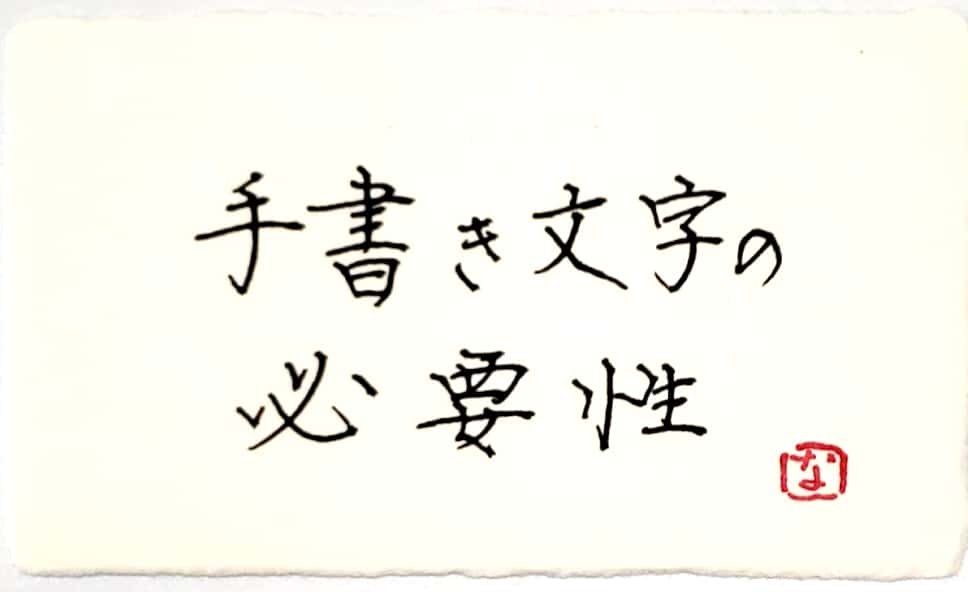 手書き文字の
必要性
な